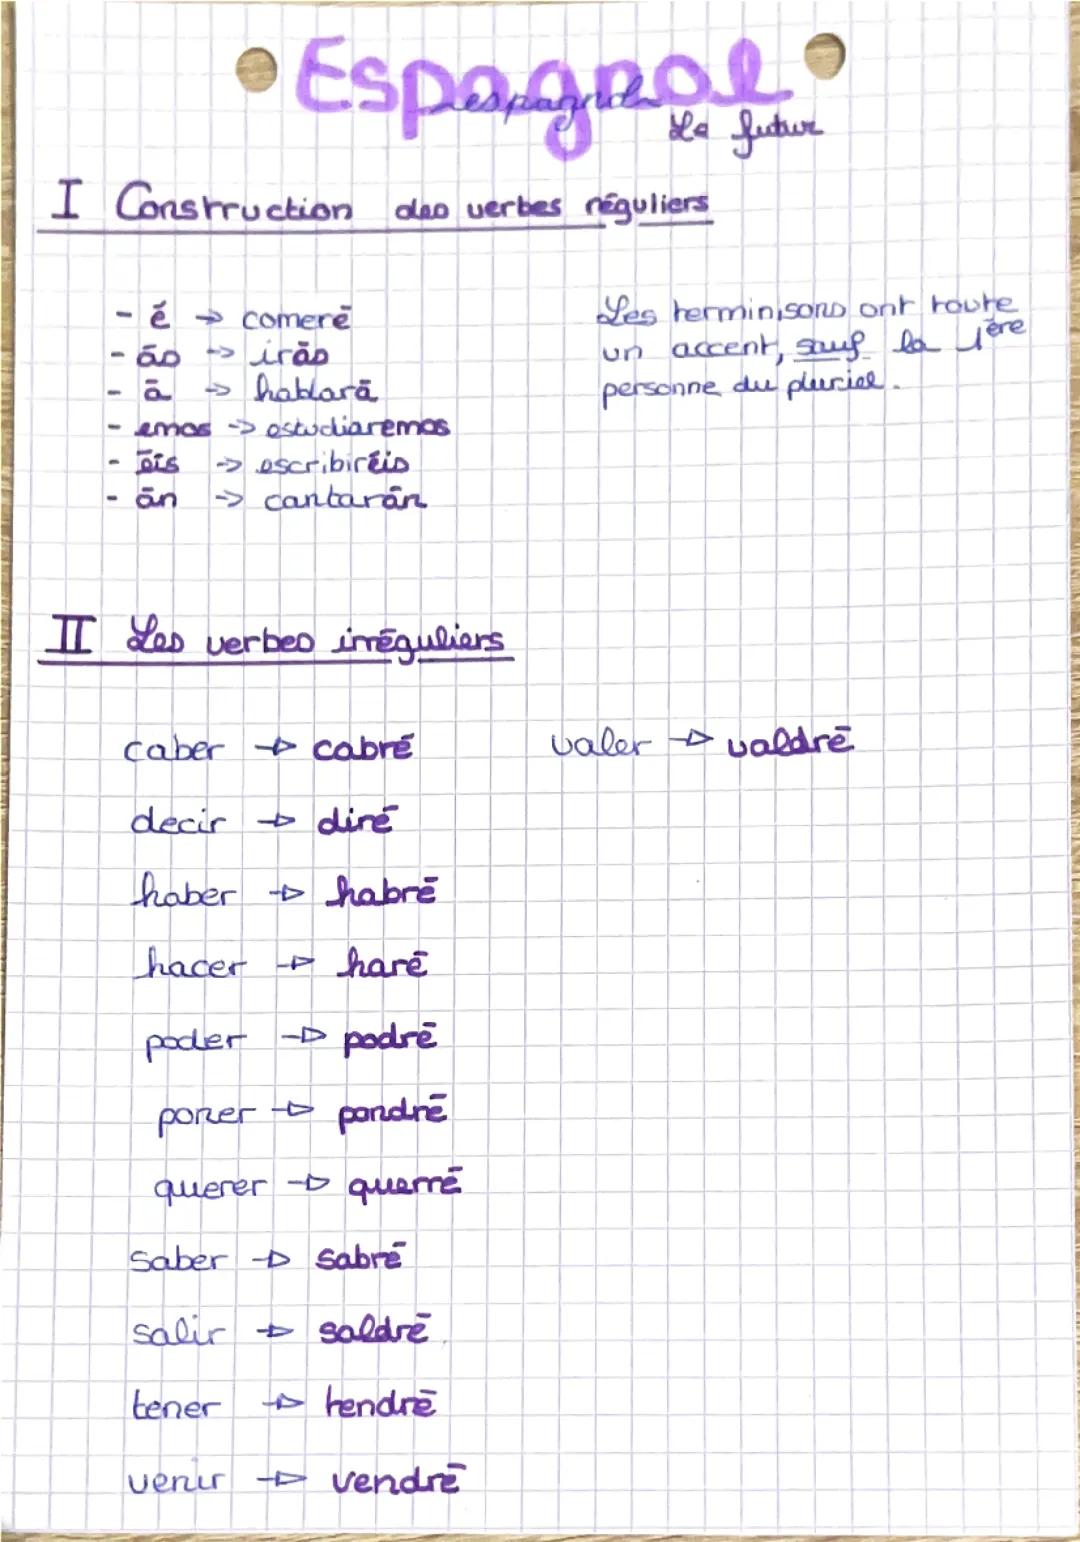 Espagnol
espagnol
Le futur
I Construction des verbes réguliers
- é → comeré
- ás → irás
- á → hablará
- emos → estudiaremos
- éis → escribiréis
- án → cantarán
Les terminisons ont toute
un accent, sauf la 1ère
personne du pluriel.
II Les verbes irréguliers
caber → cabré
decir → diré
haber → habré
hacer → haré
poder → podré
poner → pondré
querer → querré
saber → sabré
salir → saldré
tener → tendré
venir → vendré
valer → valdré